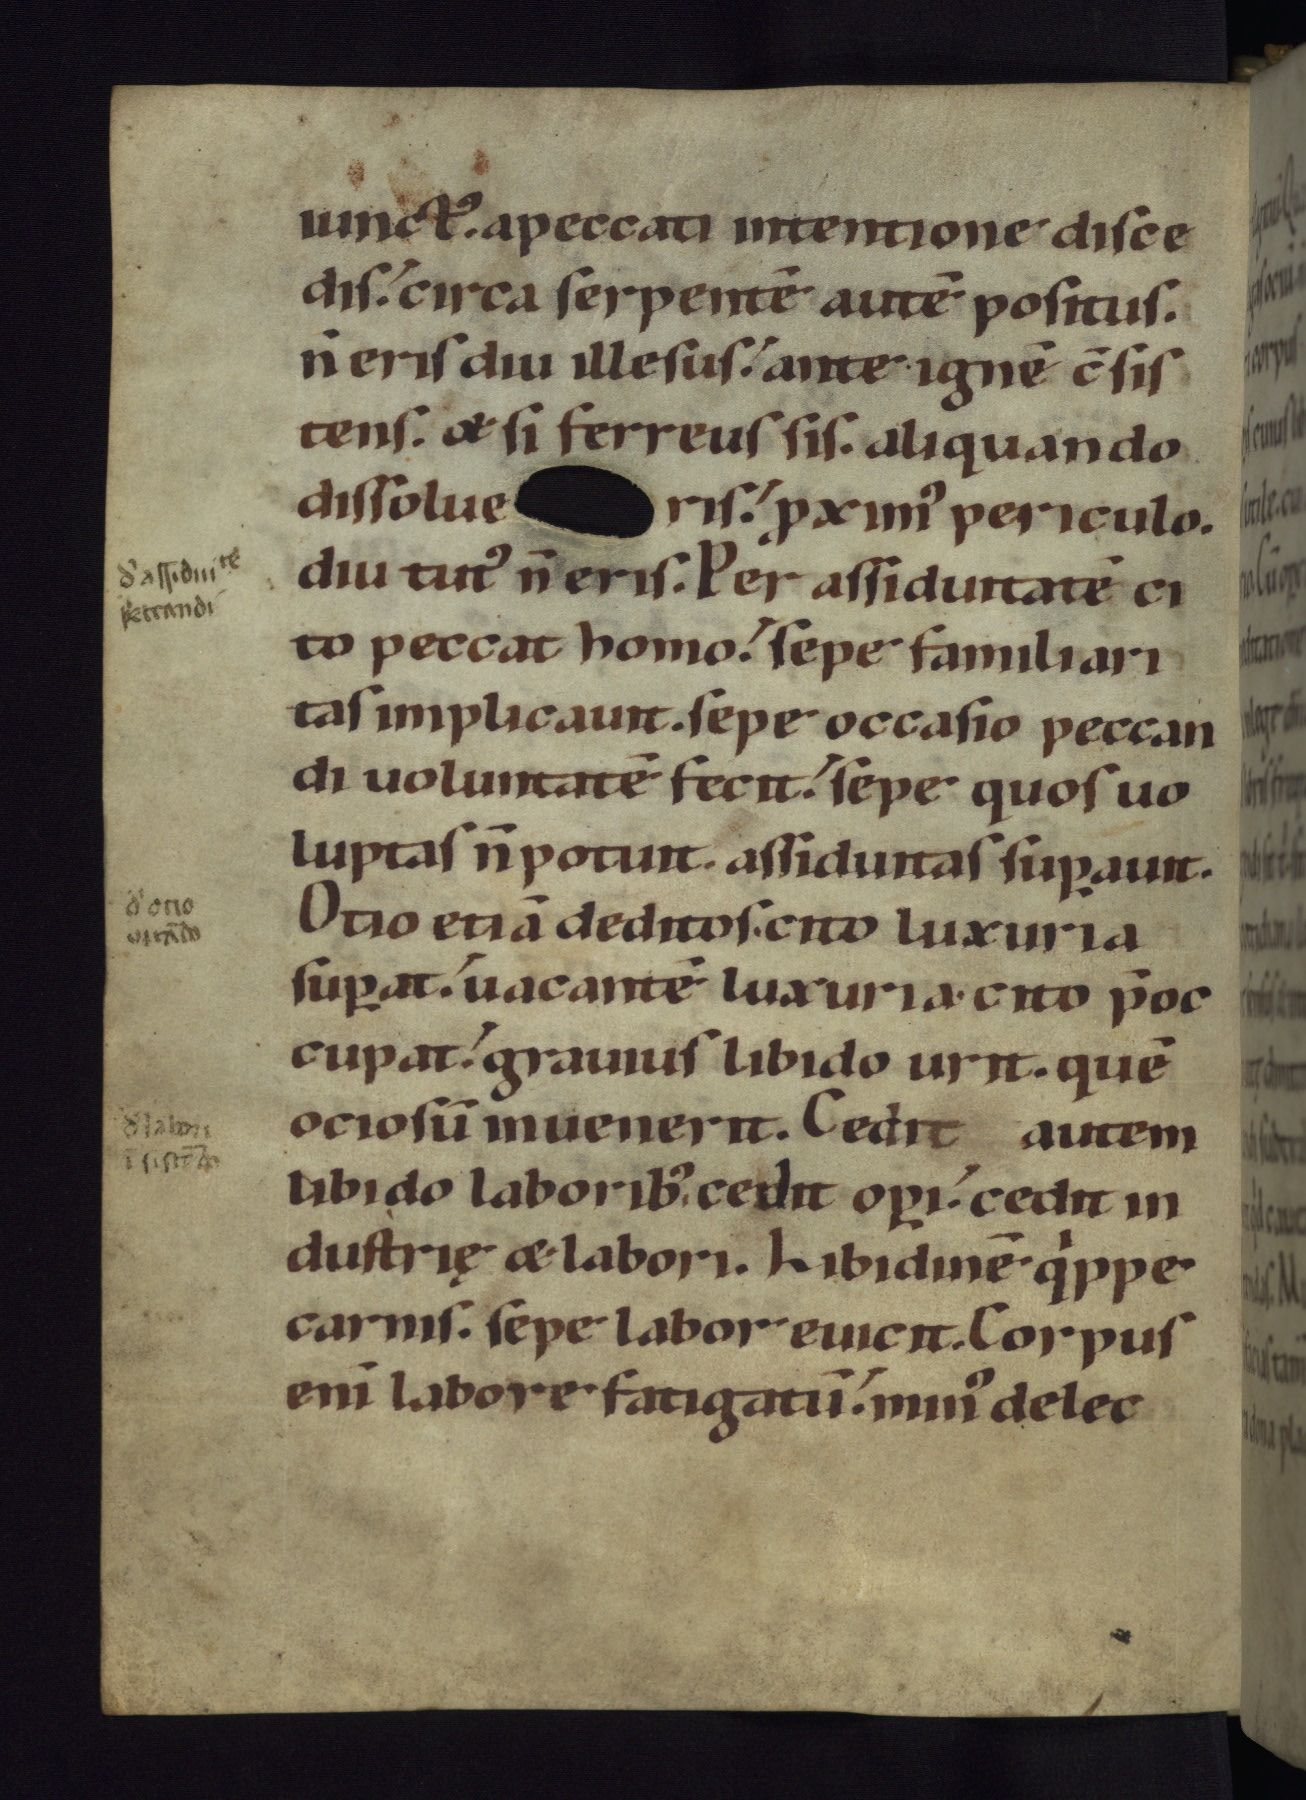 iunctꝰ. a peccati intentione disce
dis.' circa serpentē autē positus.
n̄ eris diu illesus.' ante ignē c̄sis
tens. & si ferreus sis. aliquando
dissolue ris.' ꝓximꝰ periculo.
diu tutꝰ n̄ eris. Per assiduitatē ci
to peccat homo.' sepe familiari
tas implicauit. sepe occasio peccan
di uoluntatē fecit.' sepe quos uo
luptas n̄ potuit. assiduitas suꝑauit.
Otio etiā deditos. cito luxuria
suꝑat.' uacantē luxuria cito p̄oc
cupat.' grauius libido urit. quē
ociosū inuenerit. Cedit autem
libido laboribꝰ. cedit oꝑi.' cedit in
dustrię & labori. Libidinē qͥppe
carnis. sepe labor euicit. Corpus
enī labore fatigatū.' minꝰ delec